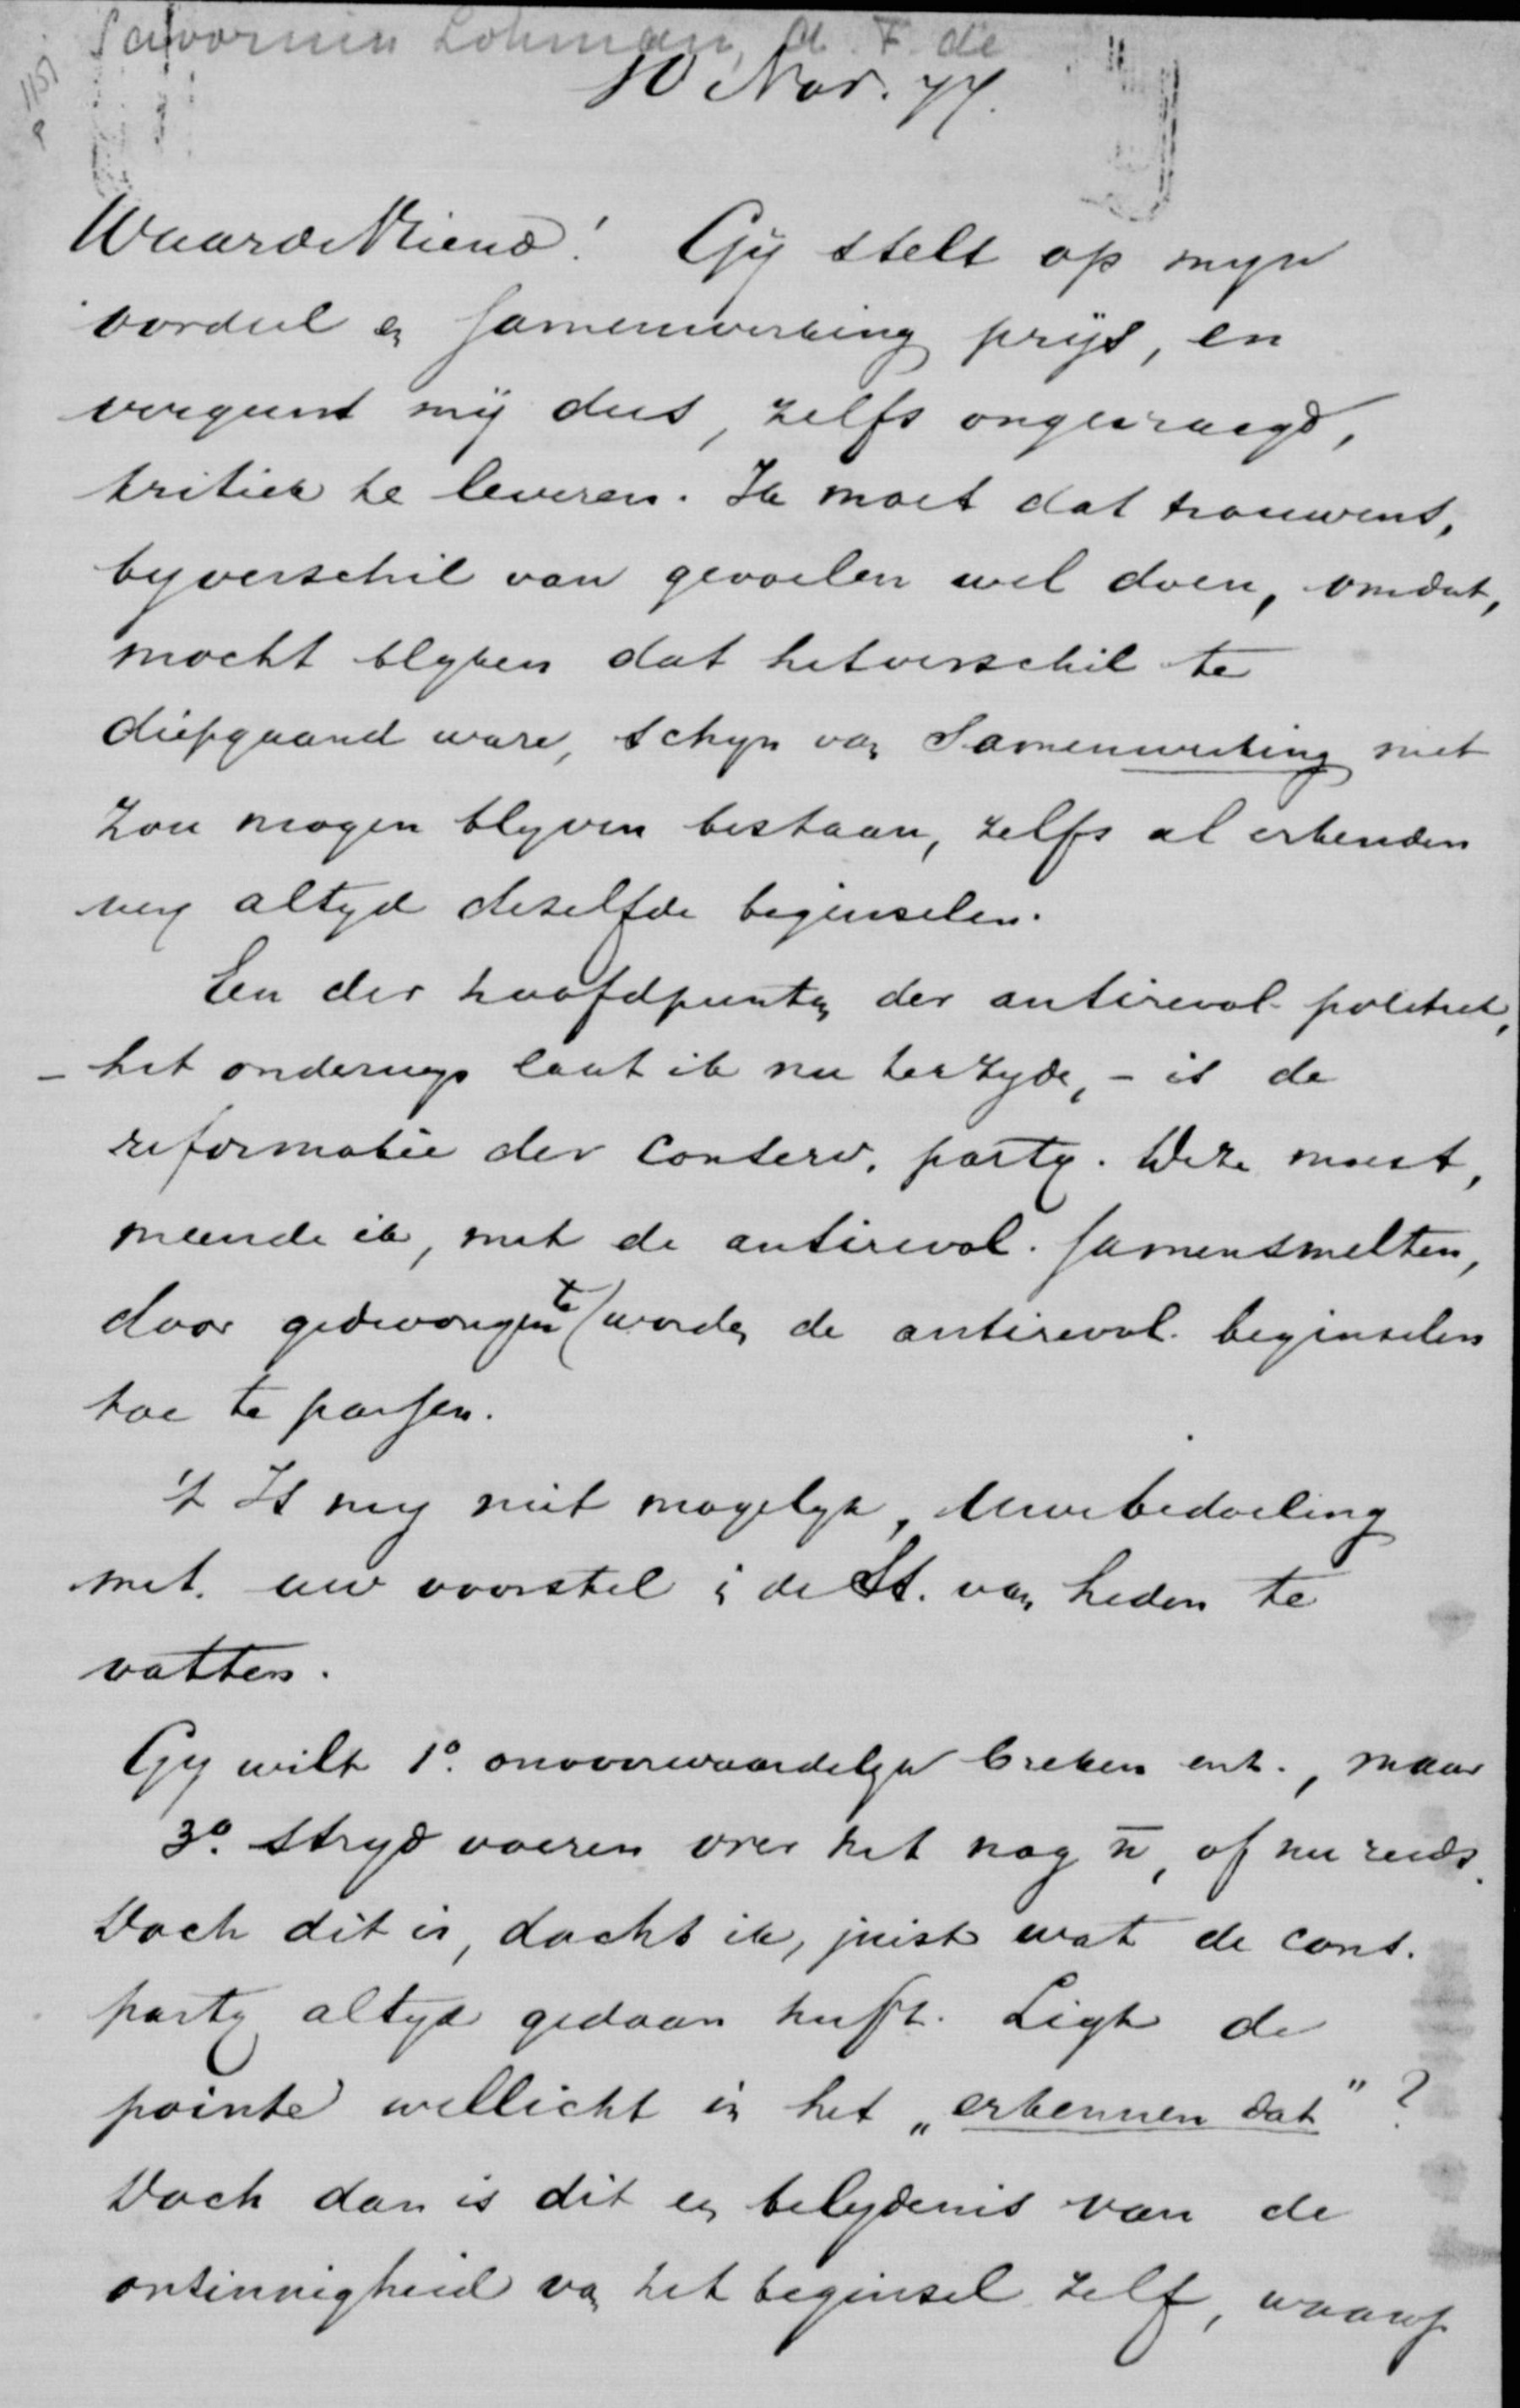 Savornin Lohman, A. F. de
10 Nov. 77.
Waarde Vriend! Gij stelt op myn
oordeel en samenwerking prijs, en
vergunt mij dus, zelfs ongevraagd,
kritiek te leveren. Ik moet dat trouwens,
by verschil van gevoelen wel doen, omdat,
mocht blyken dat het verschil te
diepgaand ware, schyn van Samenwerking niet
zou mogen blyven bestaan, zelfs al erkenden
wy altyd dezelfde beginselen.
Een der hoofdpunten der antirevol. politiek,
- het onderwys laat ik nu ter zyde, - is de
reformatie der Conserv. party. Deze moest,
meende ik, met de antirevol. samensmelten,
door gedwongen te worden de antirevol. beginselen
toe te passen.
't Is my niet mogelyk, Uwe bedoeling
met uw voorstel in de St. van heden te
vatten.
Gy wilt 1o. onvoorwaardelyk breken enz., maar
3o. stryd voeren over het nog n̅, of nu reeds.
Doch dit is, dacht ik, juist wat de cons.
party altyd gedaan heeft. Ligt de
pointe wellicht in het „erkennen dat"?
Doch dan is dit een belydenis van de
onzinnigheid van het beginsel zelf, waarop